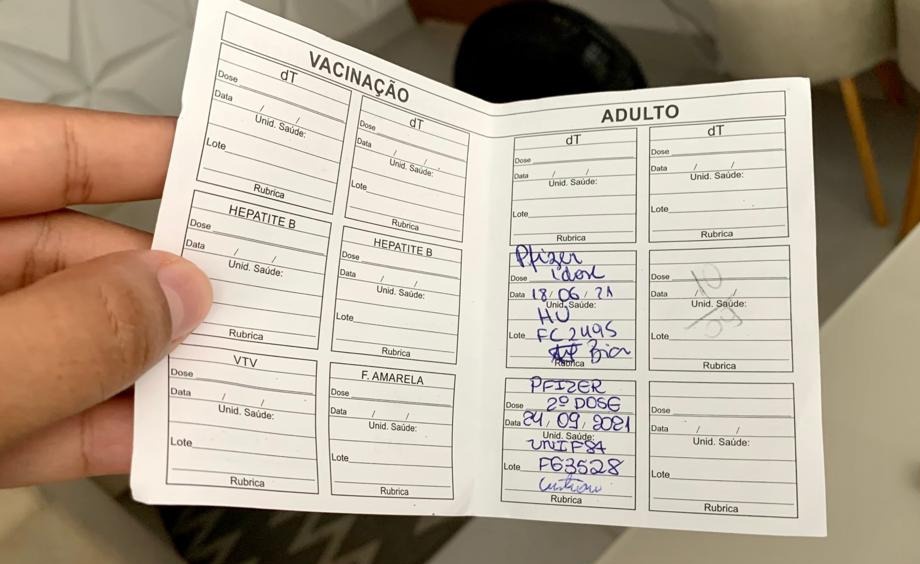 VACINAÇÃO
dT
Dose
Data / /
Unid. Saúde:
Lote
Rubrica
dT
Dose
Data / /
Unid. Saúde:
Lote
Rubrica
HEPATITE B
Dose
Data / /
Unid. Saúde:
Rubrica
HEPATITE B
Dose
Data / /
Unid. Saúde:
Lote
Rubrica
VTV
Dose
Data / /
Unid. Saúde:
Lote
Rubrica
F. AMARELA
Dose
Data / /
Unid. Saúde:
Lote
Rubrica
ADULTO
dT
Dose
Data / /
Unid. Saúde:
Lote
Rubrica
dT
Dose
Data / /
Unid. Saúde:
Lote
Rubrica
Pfizer
Dose 1 dose
Data 18/06/21
Unid. Saúde:
HU
Lote FC2495
Rubrica
Dose
Data / /
Unid. Saúde:
Lote
Rubrica
PFIZER
Dose 2º DOSE
Data 24/09/2021
Unid. Saúde:
Lote FG3528
Rubrica
Dose
Data / /
Unid. Saúde:
Lote
Rubrica